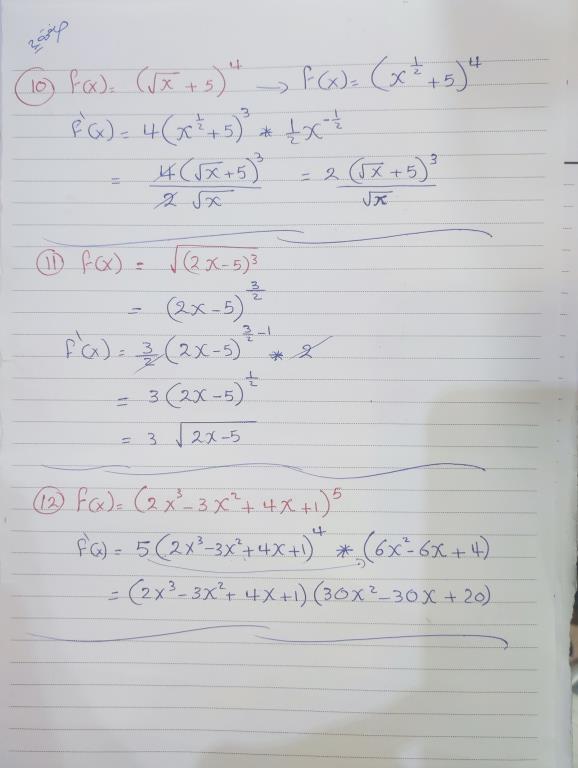 10 f(x) = (√x + 5)^4 → f(x) = (x^(1/2) + 5)^4
f'(x) = 4(x^(1/2) + 5)^3 * 1/2 x^(-1/2)
= 4(√x + 5)^3 / 2√x = 2 (√x + 5)^3 / √x
11 f(x) = √(2x-5)^3
= (2x-5)^(3/2)
f'(x) = 3/2 (2x-5)^(3/2 - 1) * 2
= 3(2x-5)^(1/2)
= 3 √(2x-5)
12 f(x) = (2x^3 - 3x^2 + 4x + 1)^5
f'(x) = 5(2x^3 - 3x^2 + 4x + 1)^4 * (6x^2 - 6x + 4)
= (2x^3 - 3x^2 + 4x + 1)(30x^2 - 30x + 20)